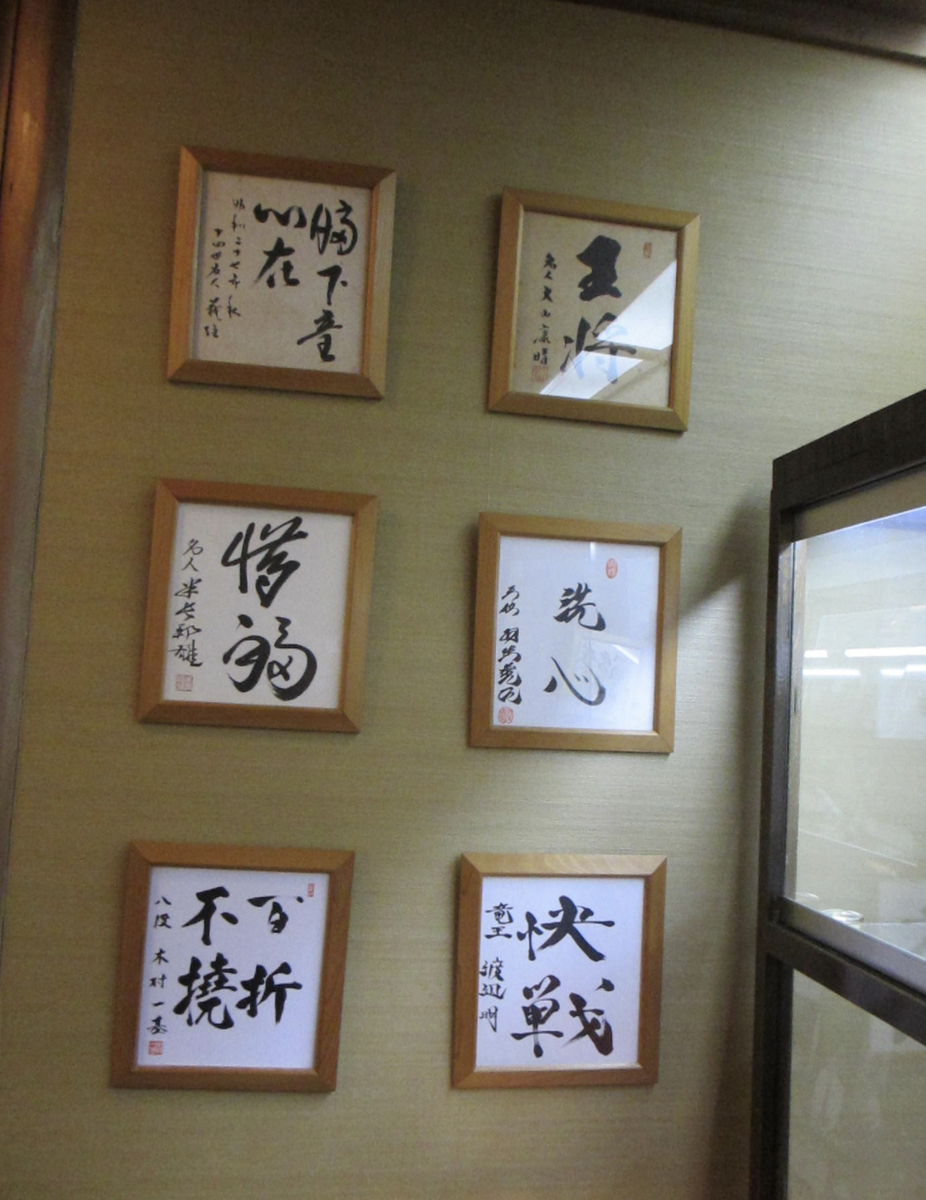 下童
心在
昭和二十七年秋
十四世名人 義雄
王将
名人 大山康晴
惜福
名人 米長邦雄
洗心
羽生善治
百折
不撓
八段 木村一基
快戦
竜王 渡辺明